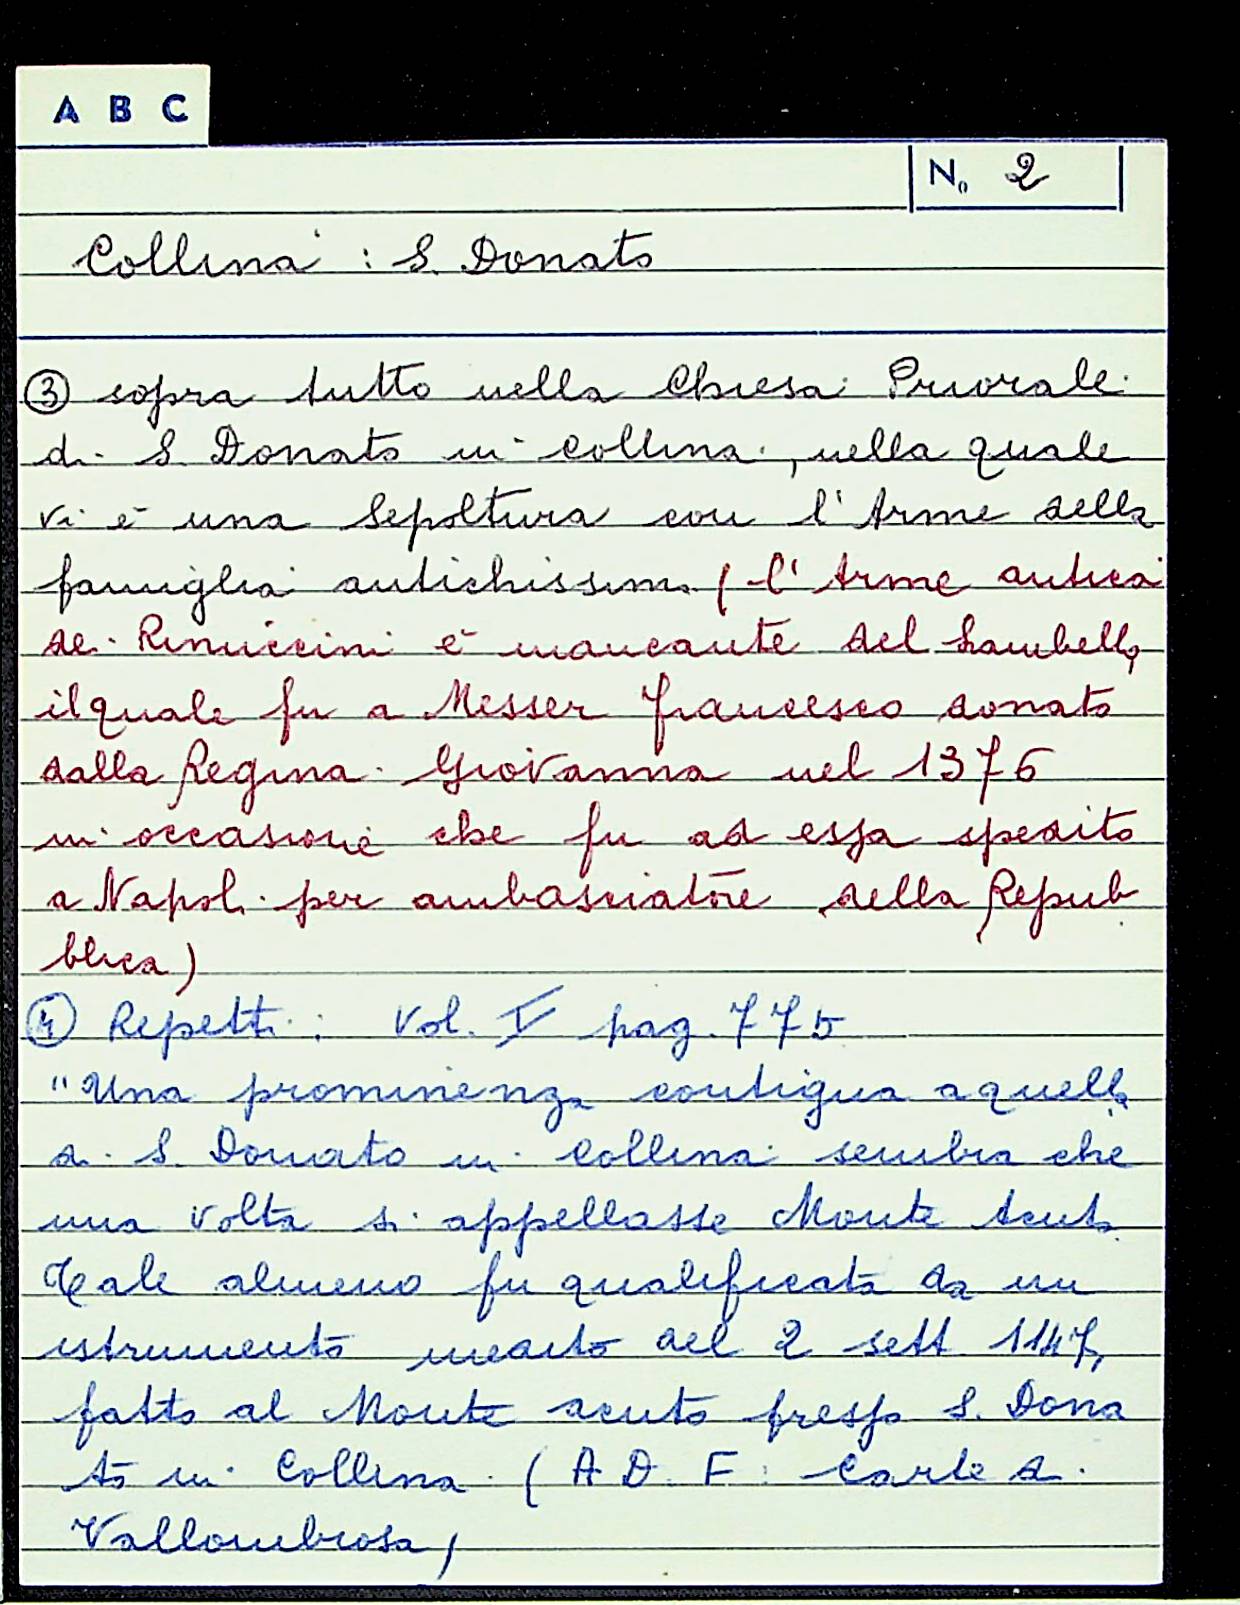 A B C
N. 2
Collina : S. Donato
③ sopra tutto nella Chiesa Priorale
di S. Donato in Collina, nella quale
vi è una Sepoltura con l'Arme della
famiglia antichissima (l'Arme antica
dei Rinuccini è mancante del lambello,
il quale fu a Messer Francesco donato
dalla Regina Giovanna nel 1376
in occasione che fu ad essa spedito
a Napoli per ambasciatore della Repub
blica)
④ Repetti: Vol. V pag. 775
"Una prominenza contigua a quella
di S. Donato in Collina sembra che
una volta si appellasse Monte Acuto.
Tale almeno fu qualificata da un
istrumento inedito del 2 sett 1147,
fatto al Monte acuto presso S. Dona
to in Collina (A. D. F: Carte di
Vallombrosa)